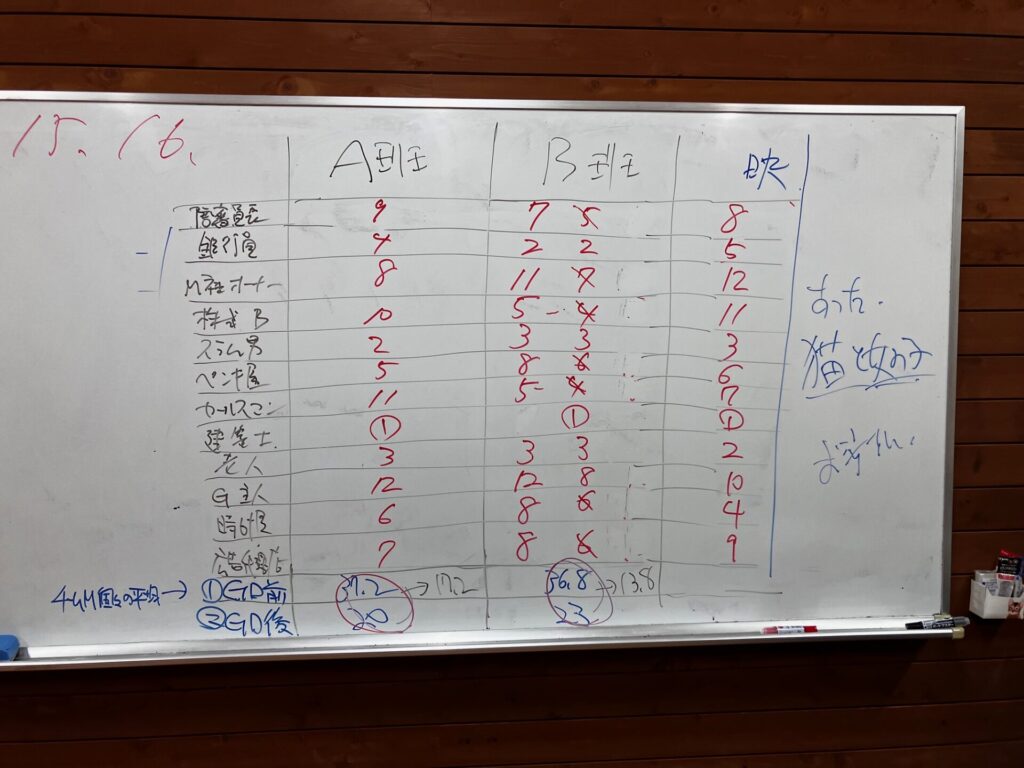 15. 16.
A班 B班 映
陪審員長 9 7 5 8
銀行員 4 2 2 5
M社オーナー 8 11 7 12
株式B 10 5 - 4 11
スラム男 2 3 3 3
ペンキ屋 5 8 6 6
セールスマン 11 5 - 4 7
建築士. ① ① ①
老人 3 3 3 2
G主人 12 12 8 10
時計屋 6 8 6 4
7 8 6 9
→ ①GD前 37.2 → 17.2 36.8 → 13.8
②GD後 20 23
猫と女の子